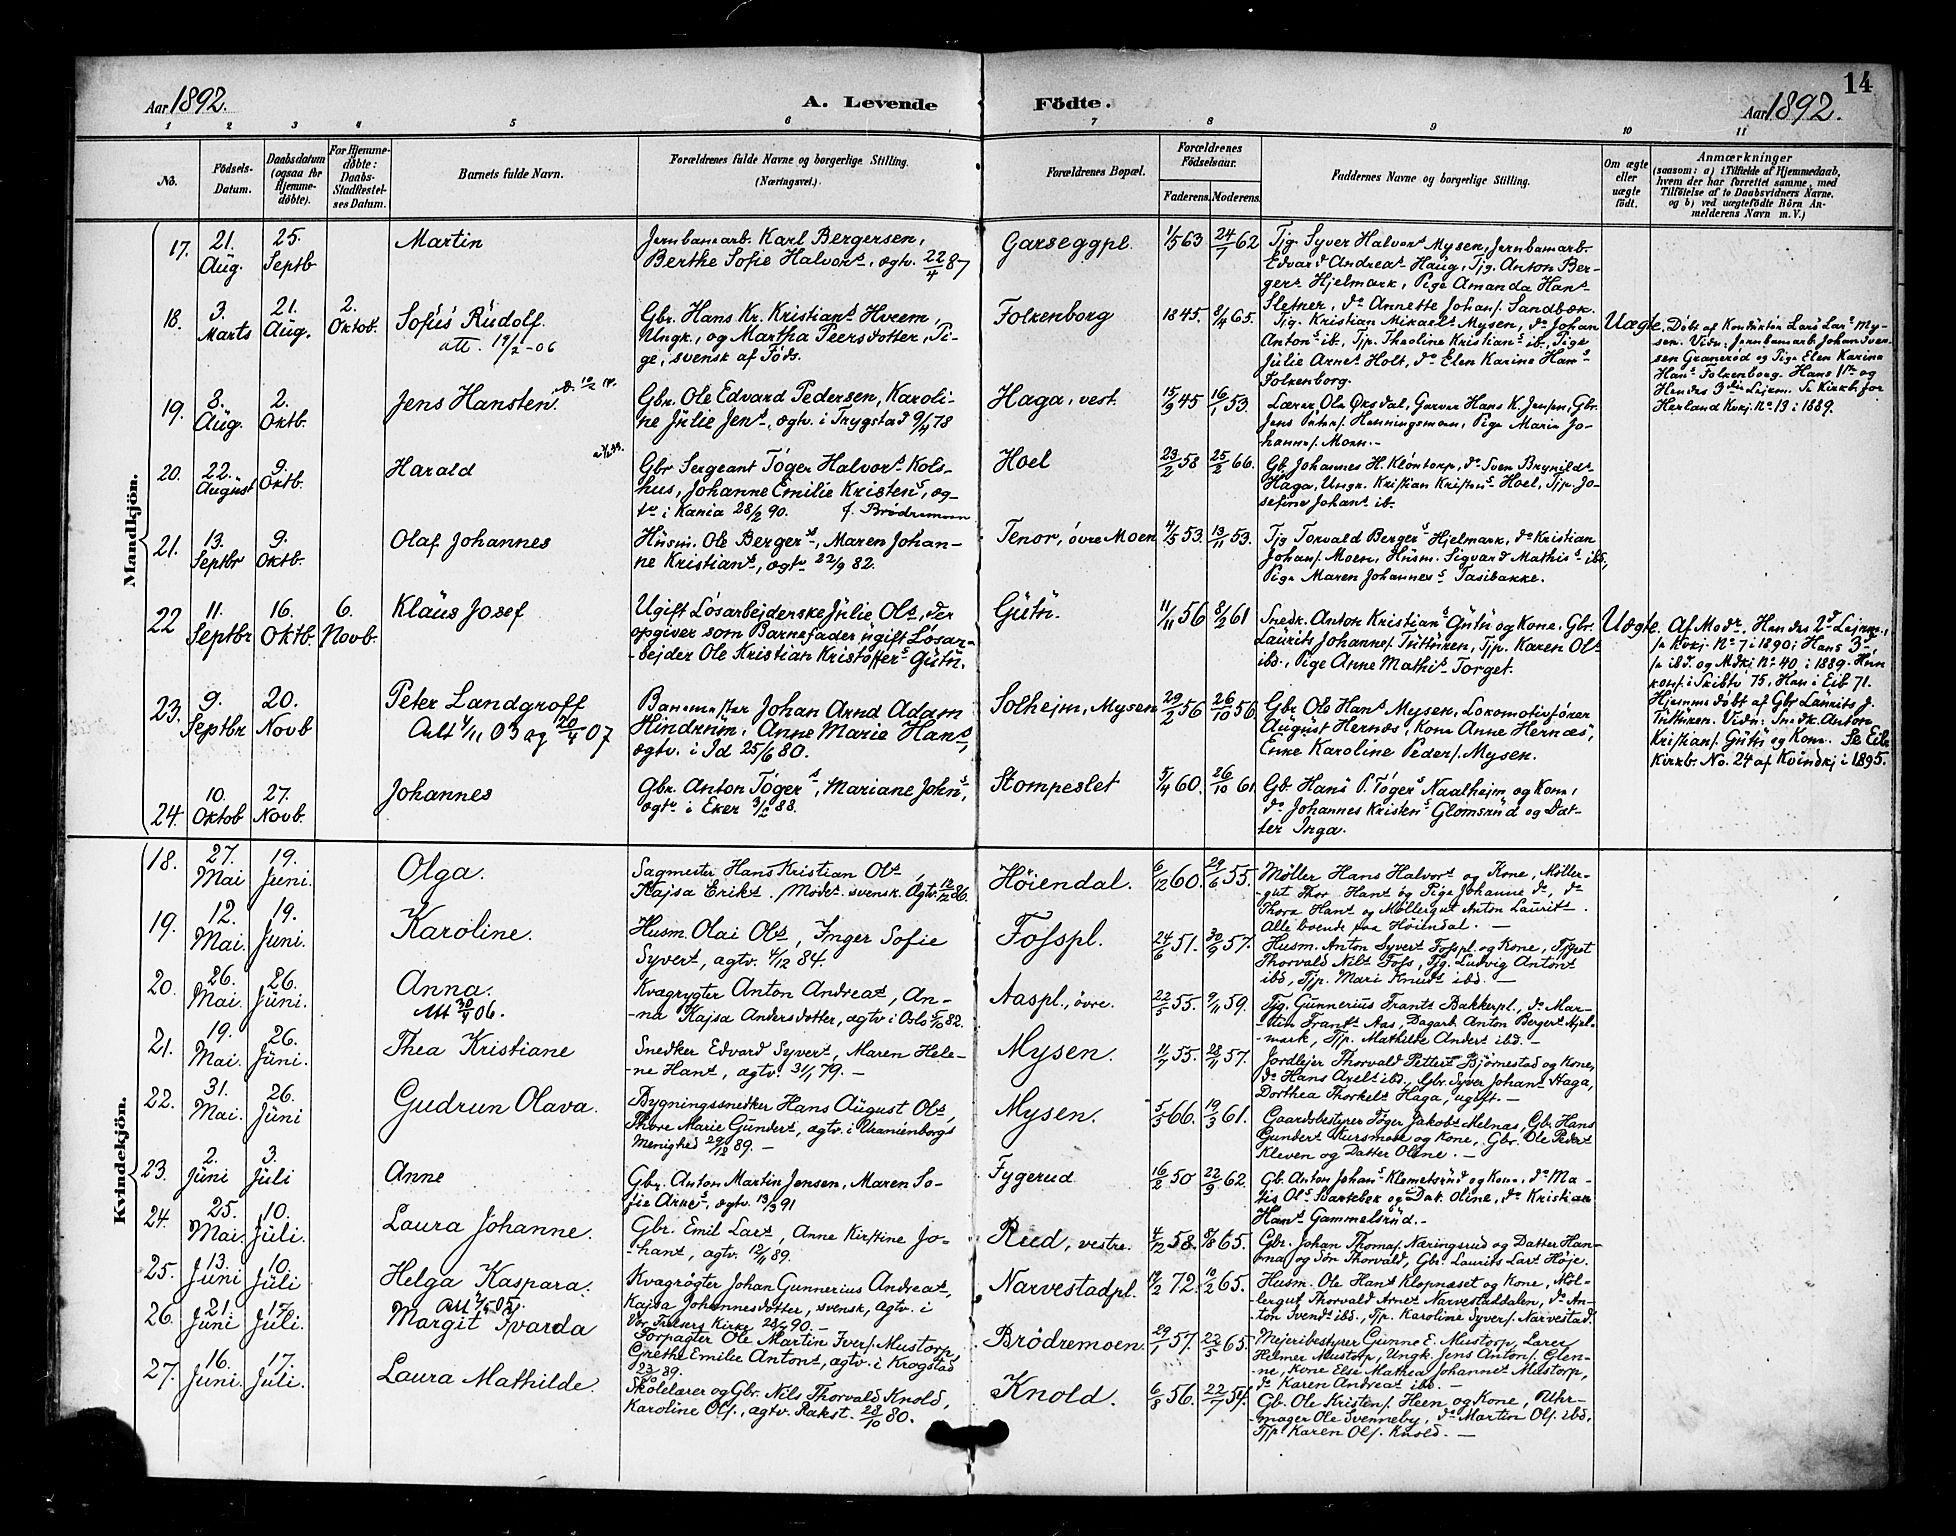 14
Aar 1892.
A. Levende
Födte.
Aar 1892.
1 2 3 4 5 6 7 8 9 10 11
No.
Födsels-Datum.
Daabsdatum (ogsaa for Hjemme-döbte).
For Hjemme-döbte: Daabs-Stadfæstel-ses Datum.
Barnets fulde Navn.
Forældrenes fulde Navne og borgerlige Stilling.
(Næringsvei.)
Forældrenes Bopæl.
Forældrenes Födselsaar.
Faderens. Moderens.
Faddernes Navne og borgerlige Stilling.
Om ægte eller uægte født.
Anmærkninger
(saasom: a) i Tilfælde af Hjemmedaab,
hvem der har forrettet samme, med
Tilföielse af to Daabsvidners Navne.
og b) ved uægtefödte Börn An-
melderens Navn m. V.)
Mandkjön.
17. 21. Aug. 25. Septb
Martin
Jernbanearb. Karl Bergersen,
Berthe Sofie Halvors., ægtv. 22/4 87
Garseggpl.
1/5 63 24/7 62
Tjg. Syver Halvors. Mysen, Jernbanearb.
Edvard Andreas. Haug, Tjg. Anton Ber-
gers. Hjelmark, Pige Amanda Hans.
Sletner, do Annette Johans. Sandbæk.
18. 3. Marts 21. Aug. 2. Oktob.
Sofus Rudolf.
att. 19/2-06
Gbr. Hans Kr. Kristians. Hveem,
Ungk., og Martha Peersdotter, Pi-
ge, svensk af Föds.
Folkenborg
1845. 8/4 65.
Tjg. Kristian Mikaels. Mysen, do Johan
Antons. ib., Tjp. Theoline Kristians. ib., Pige
Julie Arnes. Holt, do Elen Karine Hans.
Folkenborg.
Uægte.
Döbt af Konduktör Lars Lars. My-
sen. Vidn. Jernbanearb. Johan Iver-
sen Granerød og Pige Elen Karine
Hans. Folkenborg. Hans 1ste og
Hendes 3die Leierm. Se Kirkb. for
Herland Kvkj. No 13 i 1889.
19. 8. Aug. 2. Oktb.
Jens Hansten.
Gbr. Ole Edvard Pedersen, Karoli-
ne Julie Jens., ægtv. i Trygstad 9/4 78
Haga, vest.
15/9 45 16/1 53.
Lærer Ole Øksdal, Garver Hans K. Jensen, Gbr.
Jens Peters. Henningsmoen, Pige Marie Jo-
hannes. Moen.-
20. 22. August 9. Oktb.
Harald
Gbr Sergeant Töger Halvors. Kols-
hus, Johanne Emilie Kristens., æg-
tv. i Kania 28/2 90. f. Brödremoen
Hoel
23/2 58 25/2 66.
Gb. Johannes H. Klöntorp, do Sven Brynilds.
Haga, Ungk. Kristian Kristens. Hoel, Tjp. Jo-
sefine Johans. ib.
21. 13. Septbr 9. Oktb.
Olaf Johannes
Husm. Ole Bergers., Maren Johan-
ne Kristians., ægtv. 22/9 82.
Tenor, övre Moen
4/5 53. 13/11 53.
Tjg Torvald Bergers. Hjelmark, do Kristian
Johans. Moen, Husm. Sigvard Mathis. ibd,
Pige Maren Johannes. Tasibakke.
22 11. Septbr 16. Oktb. 6. Novb.
Klaus Josef
Ugift Lösarbejderske Julie Ols., der
opgiver som Barnefader ugift Lösar-
-bejder Ole Kristian Kristoffers. Gutu.
Gutu.
11/11 56 8/2 61
Snedk. Anton Kristians. Gutu og Kone, Gbr.
Laurits Johannes. Tuttüren, Tjp. Karen Ols.
ibd., Pige Anne Mathis. Torget.
Uægte.
Af Modr. Hendes 2d Leierm.,
se Kvkj. No 7 i 1890; Hans 3d
se ibd. og Mdkj No 40 i 1889. Hun
konf. i Skibtv 75, Han i Eib 71.
Hjemmedöbt af Gbr Laurits J.
Tuttüren. Vidn. Snedk. Anton
Kristians. Gutu og Kone. Se Eib.
Kirkb. No. 24 af Kvindkj i 1895.
23. 9. Septbr 20. Novb
Peter Landgroff
Att 4/11 03 og 20/4 07
Banemester Johan Arnd Adam
Hindrum, Anne Marie Hans.,
ægtv. i Id 25/6 80.
Solhejm, Mysen
29/2 56 26/10 56.
Gbr Ole Hans. Mysen, Lokomotivförer
August Hernæs, Kone Anne Hernæs,
Enke Karoline Peders. Mysen.
24. 10. Oktob 27. Novb.
Johannes
Gbr. Anton Tögers., Mariane Johns.,
ægtv. i Eker 3/2 88.
Stompeslet
5/4 60. 26/10 61
Gb. Hans P. Tögers. Naalheim og Kone,
do Johannes Kristens. Glomsrud og Dat-
ter Inga.
Kvindekjön.
18. 27. Mai 19. Juni.
Olga.
Sagmester Hans Kristian Ols.,
Kajsa Eriks. Moder svensk. Ægtv. 12/12 86.
Höiendal.
6/12 60. 29/6 55.
Møller Hans Halvors. og Kone, Møller-
-gut Thor Hans. og Pige Johanne do, do
Thora Hans. og Møllergut Anton Laurits.
Alle boende paa Höiendal. —
19. 12. Mai. 19. Juni.
Karoline.
Husm. Olai Ols., Inger Sofie
Syvers., ægtv. 4/12 84.
Fosspl.
24/6 51. 30/9 57.
Husm. Anton Syvers. Fosspl. og Kone, Tjgut
Thorvald Nils. Foss, Tjg. Ludvig Antons.
ibd, Tjp. Mari Knuds. ibd. —
20. 26. Mai. 26. Juni.
Anna.
Att 30/4 06.
Kvægrygter Anton Andreas., An-
-na Kajsa Andersdotter, ægtv i Oslo 5/10 82.
Aaspl., övre.
22/5 55. 9/11 59.
Tjg. Gunnerius Frants. Bakkerpl., do Mar-
-tin Frants. Aas, Dagarb. Anton Bergers. Hjel-
mark, Tjp. Mathilde Anders. ibd. —
21. 19. Mai. 26. Juni.
Thea Kristiane
Snedker Edvard Syvers., Maren Hele-
-ne Hans., ægtv. 31/1 79. —
Mysen.
11/7 55. 28/11 57.
Jordlejer Thorvald Petters. Bjørnestad og Kone,
do Hans Axels. ibd., Gbr. Syver Johans. Haga,
Dorthea Thorkels. Haga, ugift. —
22. 31. Mai. 26. Juni
Gudrun Olava.
Bygningssnedker Hans August Ols.,
Thore Marie Gunders., ægtv. i Uranienborgs
Menighed 29/12 89. —
Mysen.
5/5 66. 19/3 61.
Gaardsbestyrer Töger Jakobs. Melnæs, Gb. Hans
Gunders. Aursmoe og Kone, Gbr. Ole Peders.
Kleven og Datter Oline. —
23. 2. Juni 3. Juli
Anne
Gbr. Anton Martin Jensen, Maren So-
fie Arnes., ægtv. 13/3 91
Fygerud
16/2 50 22/9 62.
Gb. Anton Johans. Klemetsrud og Kone, do Ma-
tis Ols. Bartebæk og Dat. Oline, do Kristian
Hans. Gammelsrud.-
24. 25. Mai. 10. Juli.
Laura Johanne.
Gbr. Emil Lars., Anne Kirstine Jo-
-hans., ægtv. 12/11 89.
Rud, vestre.
4/12 58. 9/8 65.
Gbr. Johan Thomas. Næringsrud og Datter Han-
na og Sön Thorvald, Gbr. Laurits Lars. Höje.
25. 13. Juni 10. Juli
Helga Kaspara.
Att 4/5 05.
Kvægrögter Johan Gunnerius Andreas.,
Kajsa Johannesdotter, svensk, ægtv. i
Vor Frelsers Kirke 28/2 90. —
Narvestadpl.
19/2 72. 10/2 65.
Husm. Ole Hans. Klopnæset og Kone, Møl-
lergut Thorvald Arnes. Narvestaddalen, do An-
ton Svends. ibd., Tjp. Karoline Syvers. Narvestad.
26. 21. Juni 17. Juli.
Margit Ivarda
Forpagter Ole Martin Ivers. Mustorp,
Grethe Emilie Antons., ægtv. i Krogstad
Brödremoen.
29/1 57. 22/5 65.
Mejeribestyrer Gunne E. Mustorp, Lærer
Helmer Mustorp, Ungk. Jens Antons. Glen-
ne, Kone Else Mathea Johannes. Mustorp,
do Karen Andreas. ibd. —
27. 16. Juni. 17. Juli.
Laura Mathilde.
Skolelærer og Gbr. Nils Thorvald Knold,
Karoline Ols., ægtv. Rakst. 28/10 80.
Knold.
6/8 56. 22/7 54.
Gb. Ole Kristens. Heen og Kone, Uhr-
mager Ole Svenneby, do Martin Ols. ibd.
Tjp. Karen Ols. Knold. —